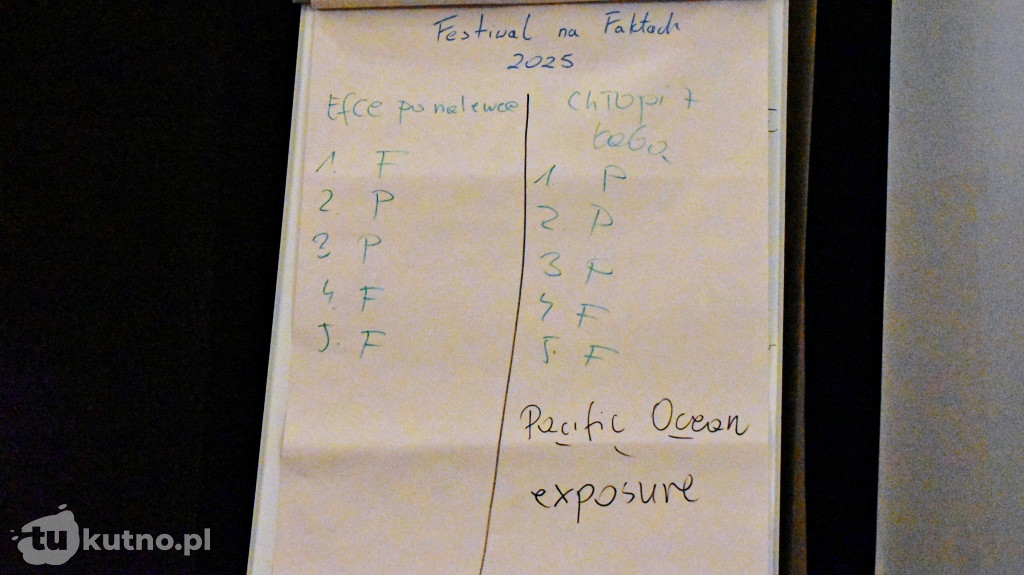 Festiwal na Faktach
2025
Efce po nalewce
1. F
2. P
3 P
4. F
5. F
Chłopi z
babą
1 P
2. P
3 F
4 F
5. F
Pacific Ocean
exposure
tukutno.pl